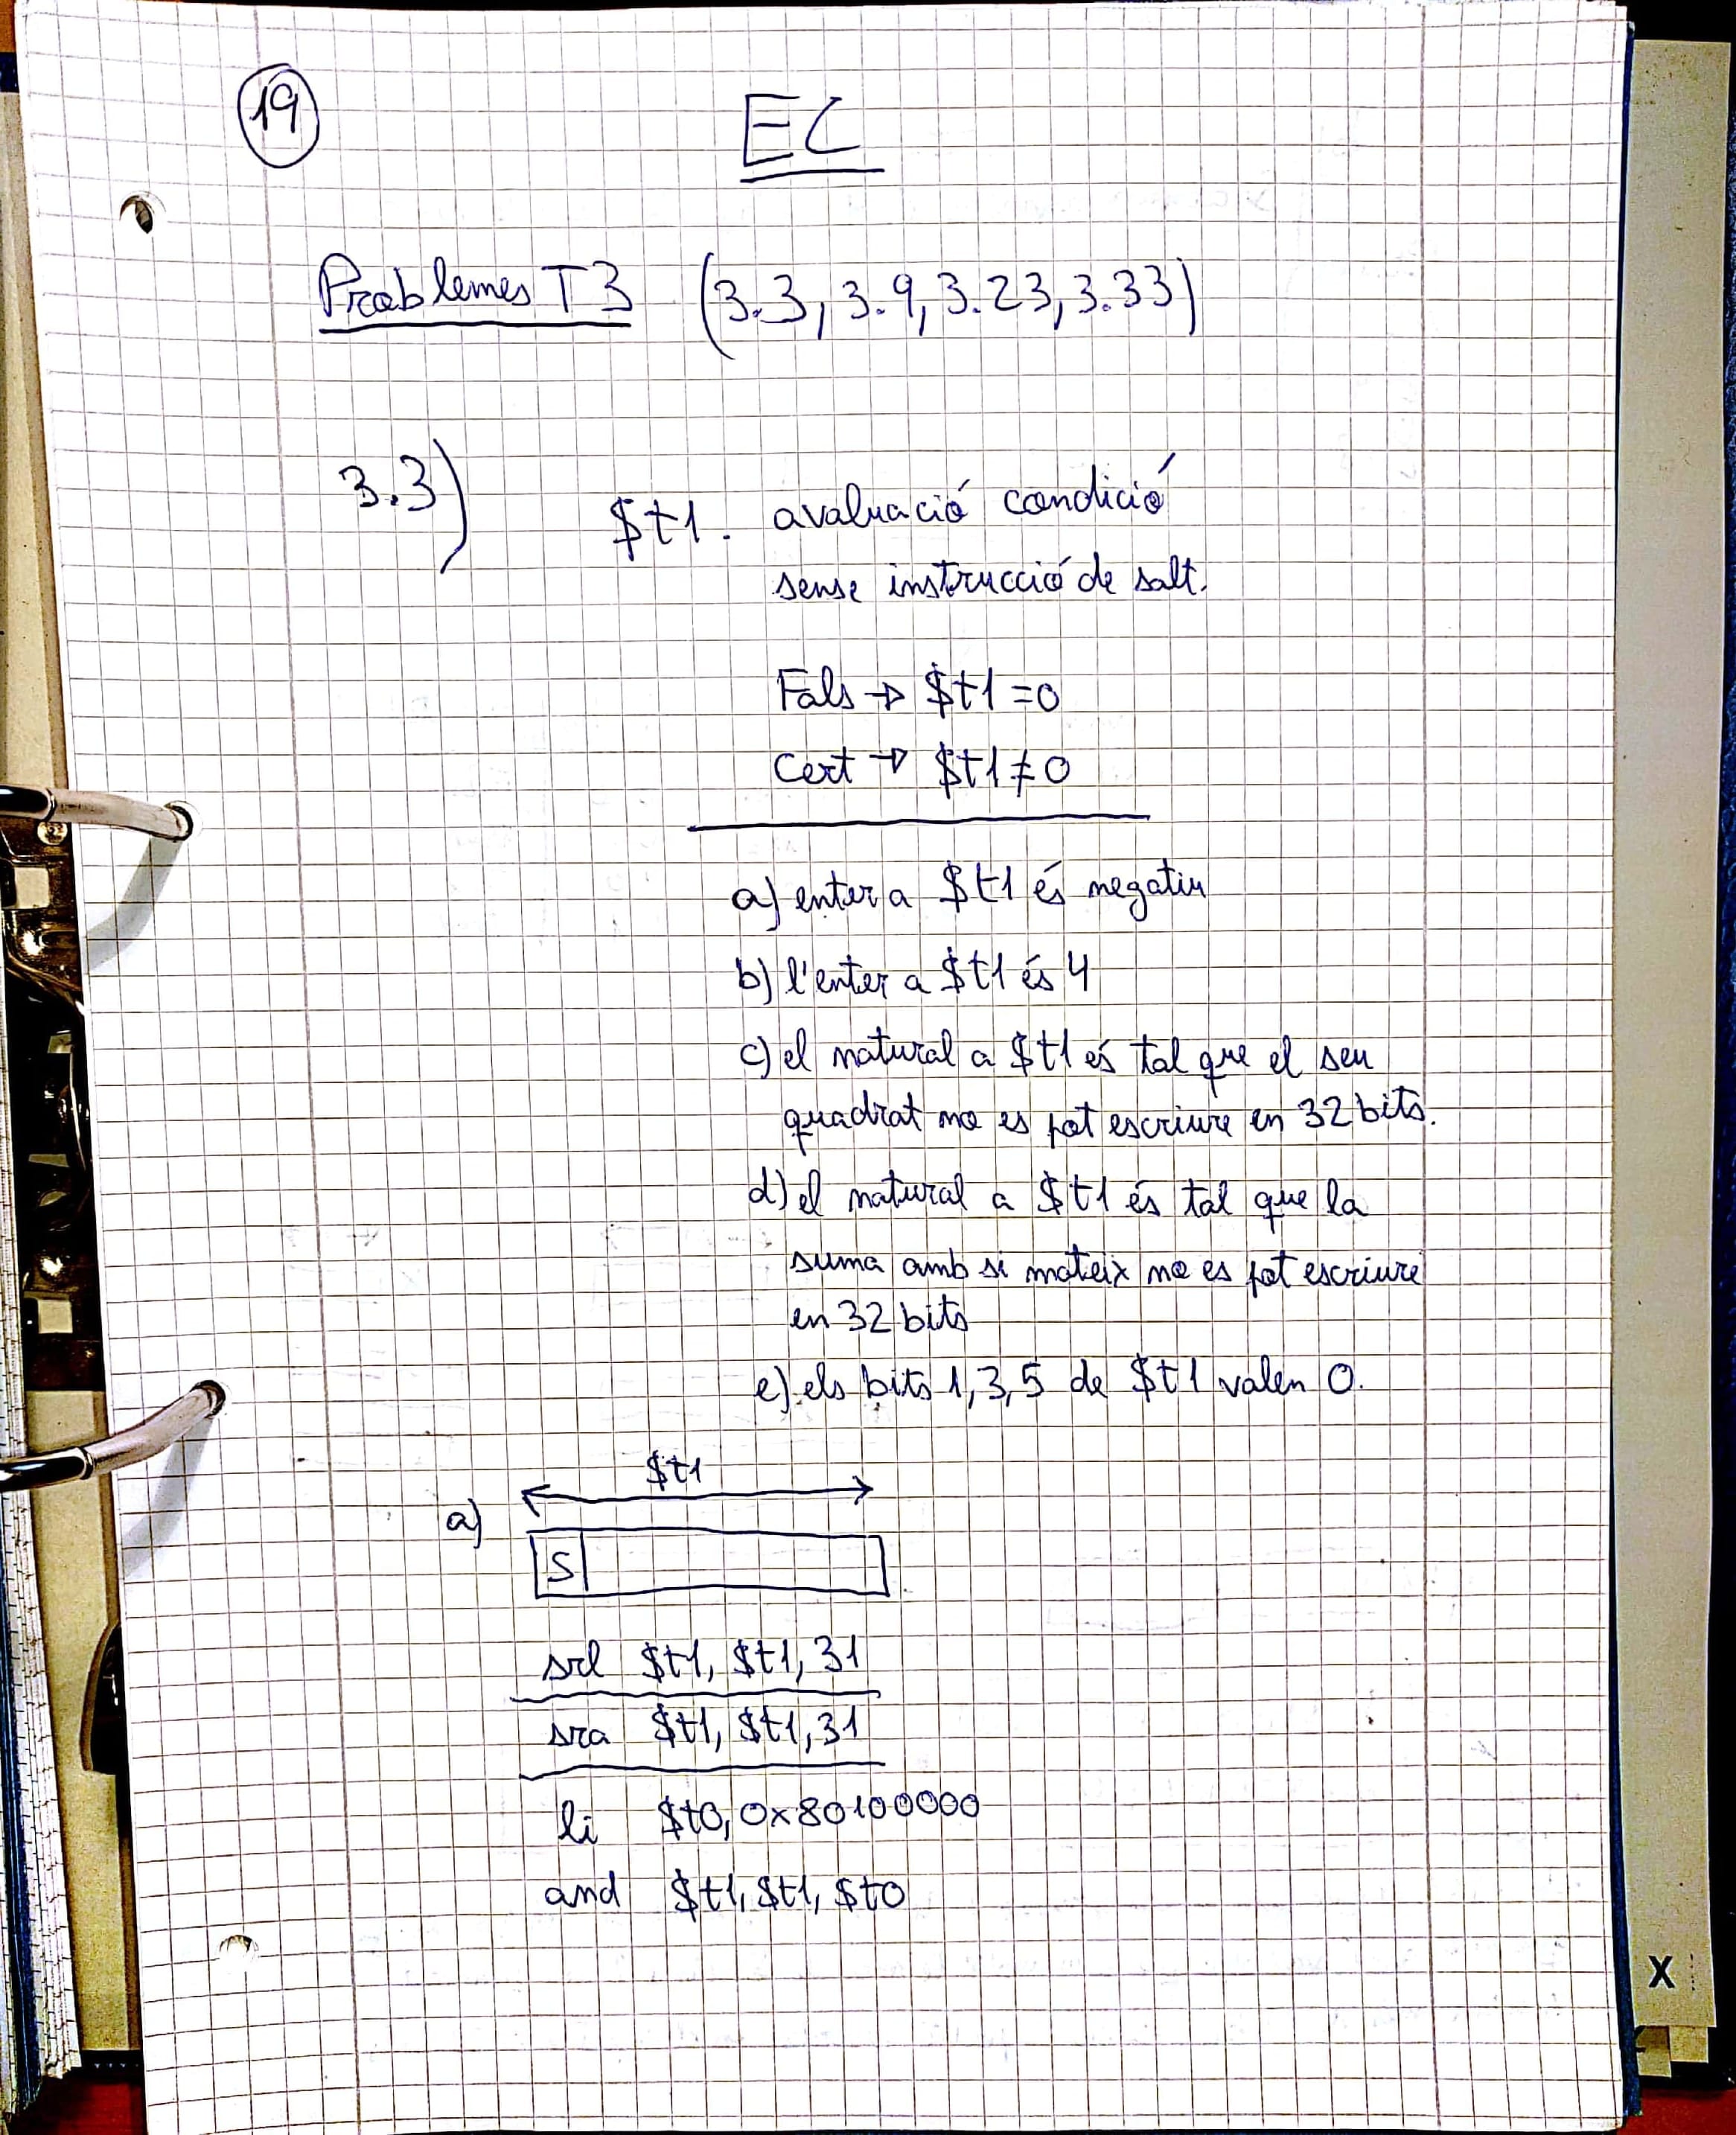 19
EC
Problemes T3 (3.3, 3.9, 3.23, 3.33)
3.3)
$t1. avaluació condició
sense instrucció de salt.
Fals → $t1 = 0
Cert → $t1 ≠ 0
a) enter a $t1 és negatiu
b) l'enter a $t1 és 4
c) el natural a $t1 és tal que el seu
quadrat no es pot escriure en 32 bits.
d) el natural a $t1 és tal que la
suma amb si mateix no es pot escriure
en 32 bits
e) els bits 1, 3, 5 de $t1 valen 0.
$t1
a)
S
srl $t1, $t1, 31
sra $t1, $t1, 31
li $t0, 0x80100000
and $t1, $t1, $t0
X